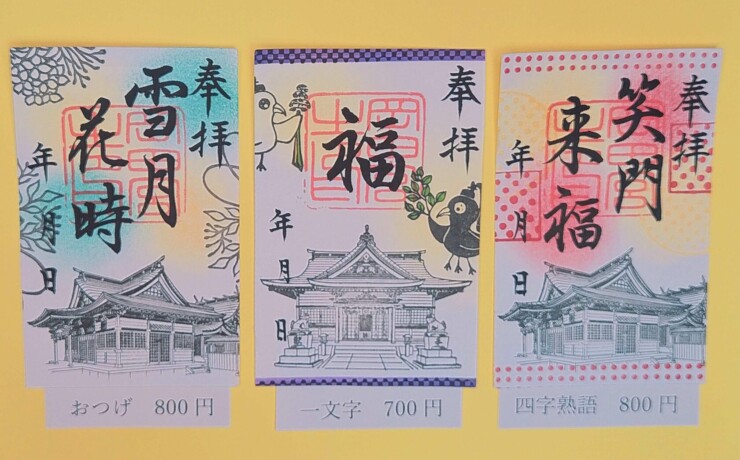 奉拝
雪月
花時
年月日
おつげ 800円
奉拝
福
年月日
一文字 700円
奉拝
笑門
来福
年月日
四字熟語 800円